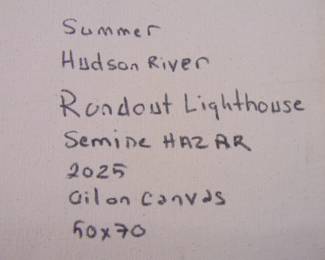 Summer
Hudson River
Rondout Lighthouse
Semine HAZAR
2025
Oil on Canvas
50x70